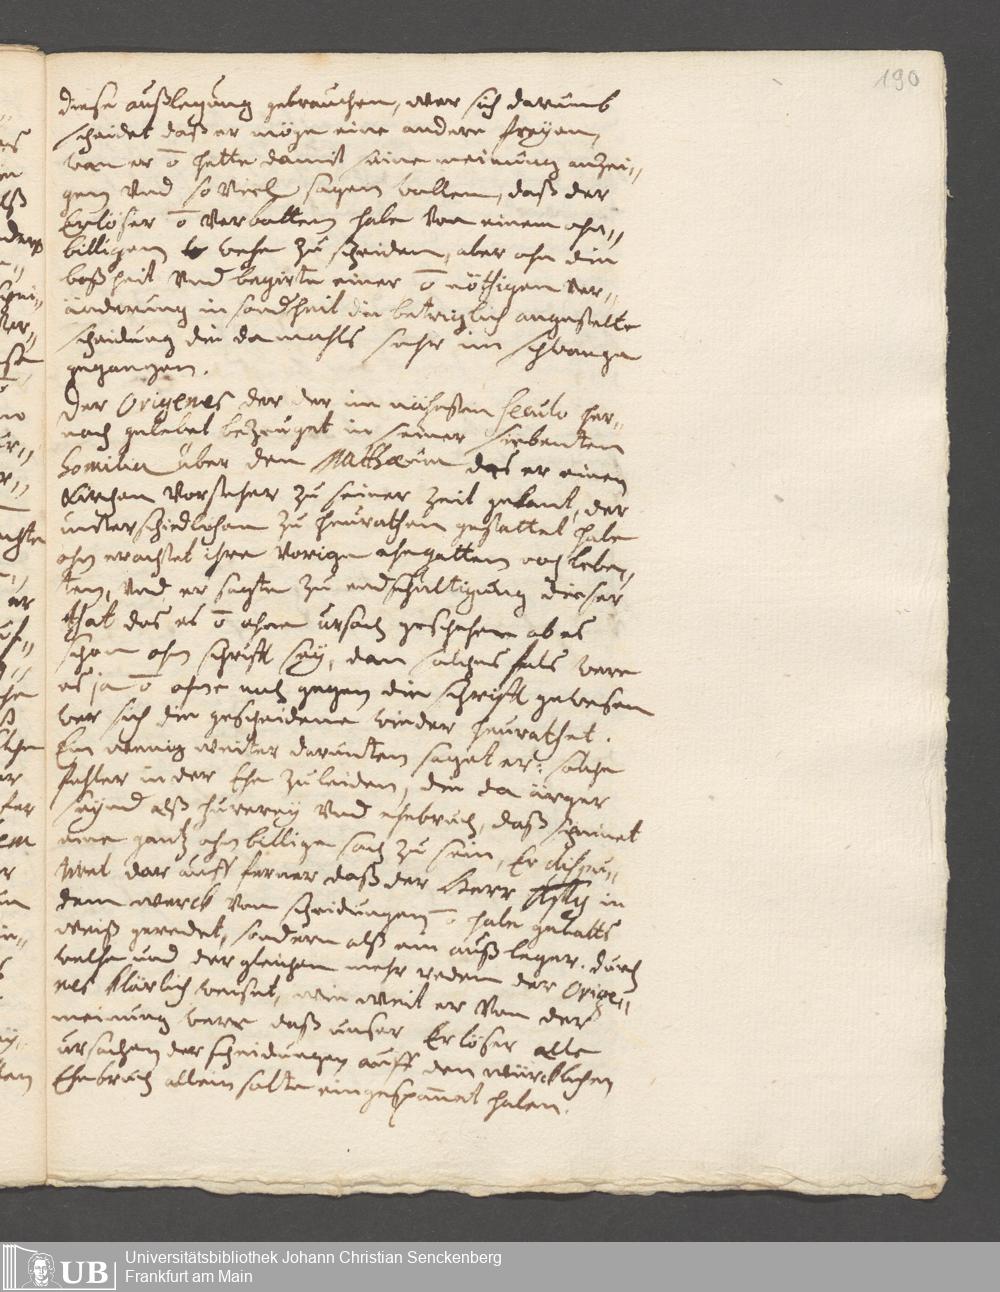 190
diese außlegung gebrauchen, wer sich darumb
scheidet daß er möge eine andere freyen,
wan er o̅ hette damit seine meinung anzei-
gen und so viel sagen wollen, daß der
Erlöser o̅ verbotten habe von einem ohn-
billigen wehe zu scheiden, aber ohn die
boßheit und begirte einer o̅ nöthigen ver-
änderung in sonderheit die betrüglich angestelte
scheidung die damahls sehr im schwange
gegangen.
Der Origenes der der im nähesten seculo her-
nach gelebet bezeuget in seiner siebenten
homilia über den Matthæum das er einen
Kirchen Vorsteher zu seiner Zeit gekant, der
unterschiedlichen zu heurathen gestattet habe
ohn erachtet ihre vorige ehegatten noch lebe-
ten, und er sagte zu endschultigung dieser
that das es o̅ ohne ursach geschehen ob es
schon ohn schrifft sey, dan solches fals were
es ja o̅ ohne auch gegen die schrifft gewesen
wer sich die gescheidene wieder heurathet.
Ein wenig weiter darunten saget er: solche
fehler in der Ehe zu leiden, die da ärger
seyend alß hurerey und ehebruch, daß scheinet
eine gantz ohnbillige sach zu sein, Er dispu-
tiret darauff ferner daß der Herr in
dem werck von scheidungen o̅ habe gebotts
weiß geredet, sondern alß ein außleger. durch
welche und dergleichen mehr reden der Orige-
nes klärlich weiset, wie weit er von der
meinung were daß unser Erlöser alle
ursachen der scheidungen auff den würcklichen
Ehebruch allein solte eingespannet haben.
UB
Universitätsbibliothek Johann Christian Senckenberg
Frankfurt am Main